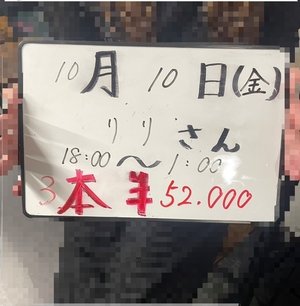 10月10日(金)
りりさん
18:00〜1:00
3本 ¥52.000